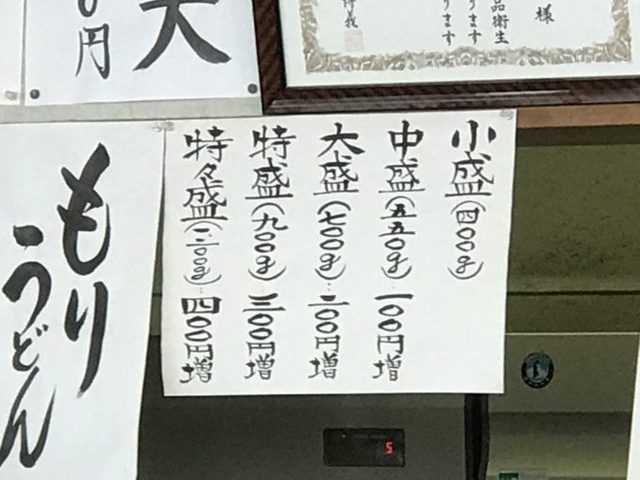 様
品衛生
ります
ります
小盛(四〇〇g)
中盛(五五〇g)…一〇〇円増
大盛(七〇〇g)…二〇〇円増
特盛(九〇〇g)…三〇〇円増
特々盛(一二〇〇g)…四〇〇円増
天
〇円
もり
うどん
5